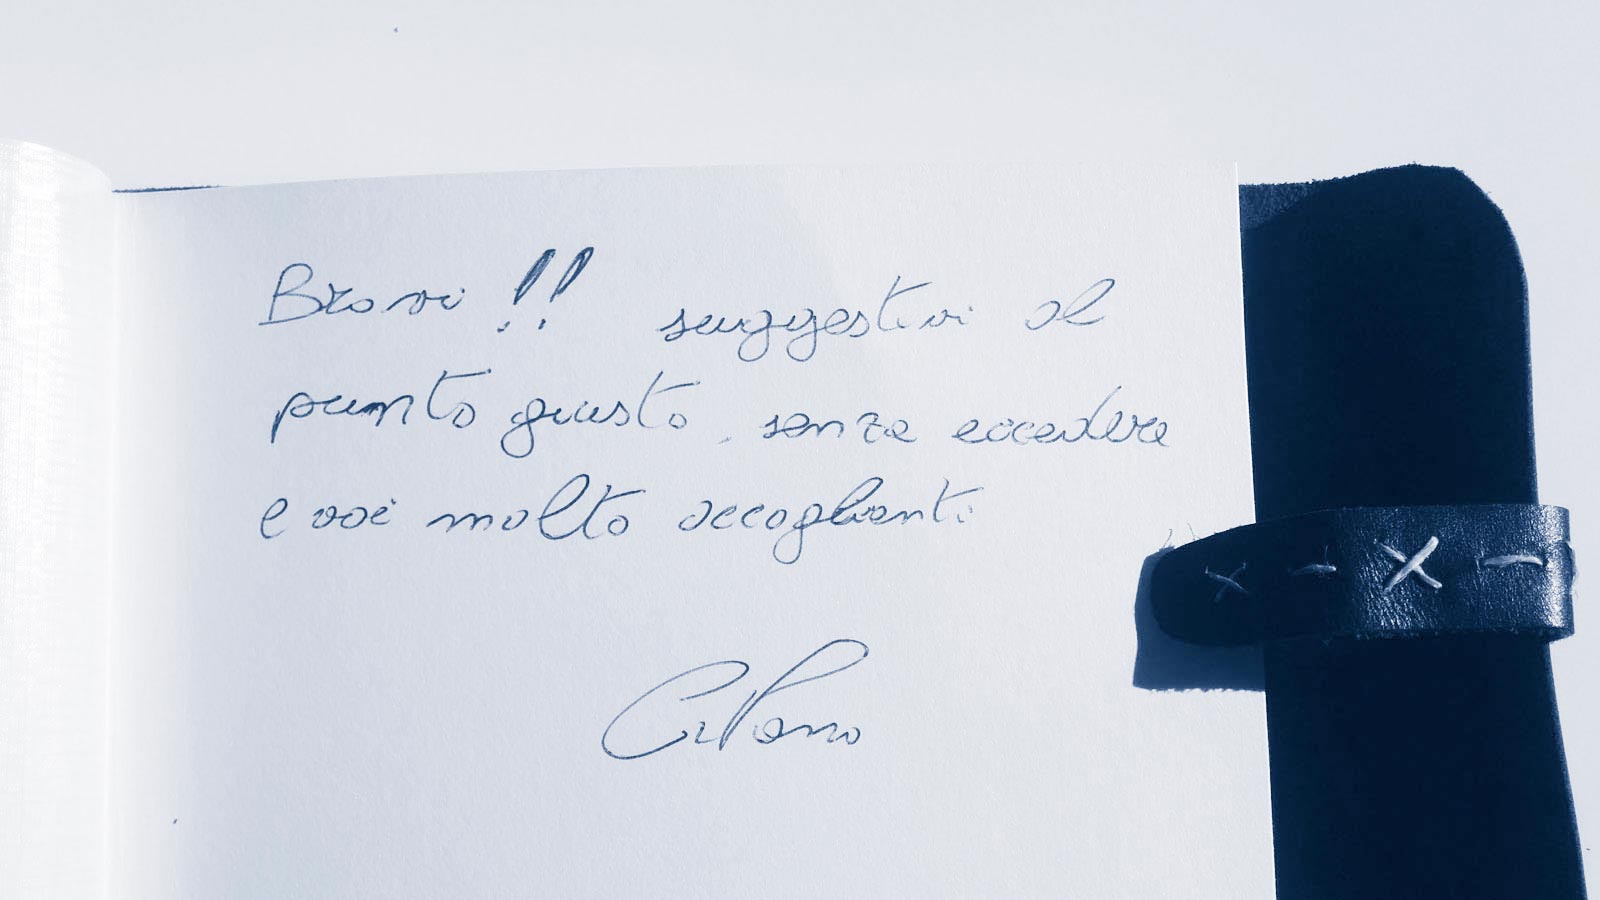 Bravi!! suggestivi al
punto giusto, senza eccedere
e voi molto accoglienti